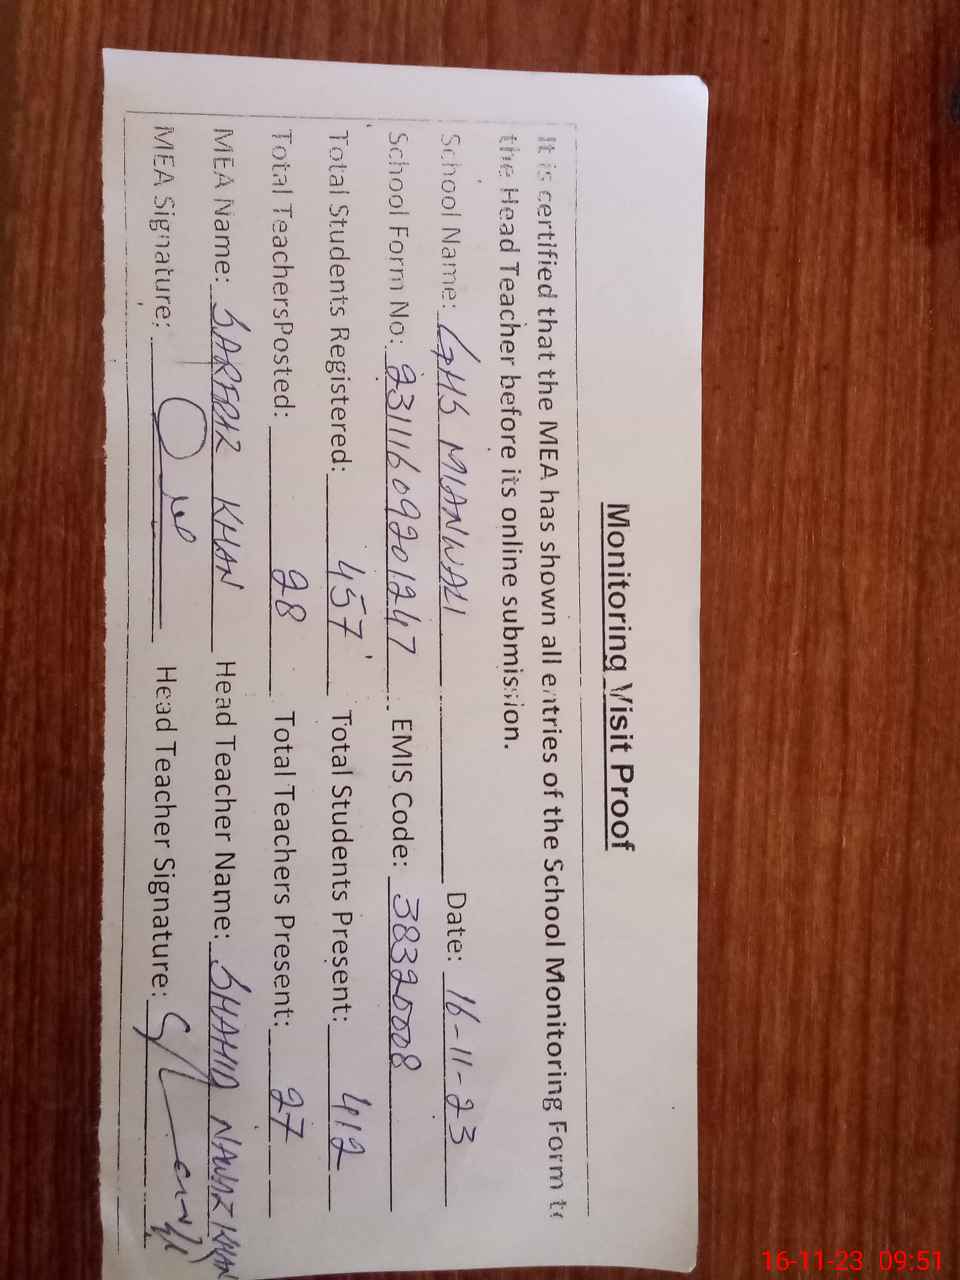 Monitoring Visit Proof
It is certified that the MEA has shown all entries of the School Monitoring Form to
the Head Teacher before its online submission.
School Name: GHS MIANWALI Date: 16-11-23
School Form No: 23111609201247 EMIS Code: 38320008
Total Students Registered: 457 Total Students Present: 412
Total TeachersPosted: 28 Total Teachers Present: 27
MEA Name: SARFRAZ KHAN Head Teacher Name: SHAHID NAWAZ KHAN
MEA Signature: Head Teacher Signature:
16-11-23 09:51